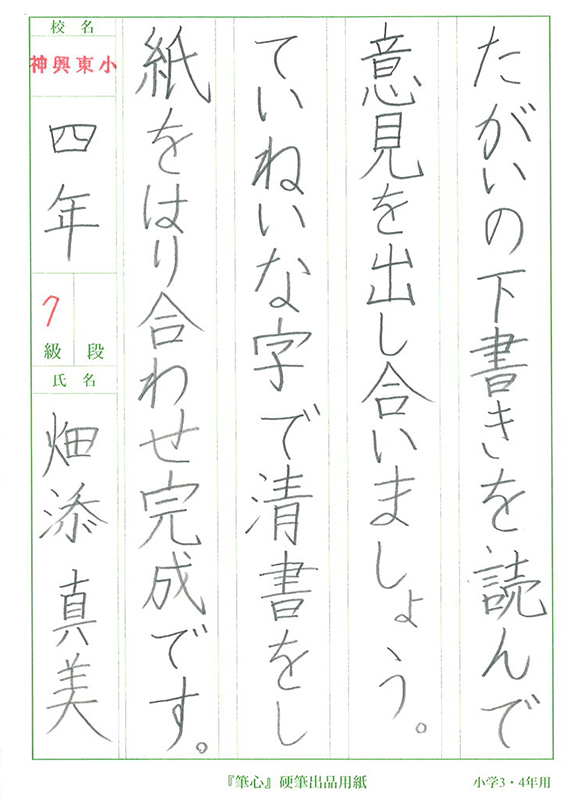 たがいの下書きを読んで
意見を出し合いましょう。
ていねいな字で清書をし
紙をはり合わせ完成です。
校名
神興東小
四年
段
級
7
氏名
畑添真美
『筆心』硬筆出品用紙
小学3・4年用